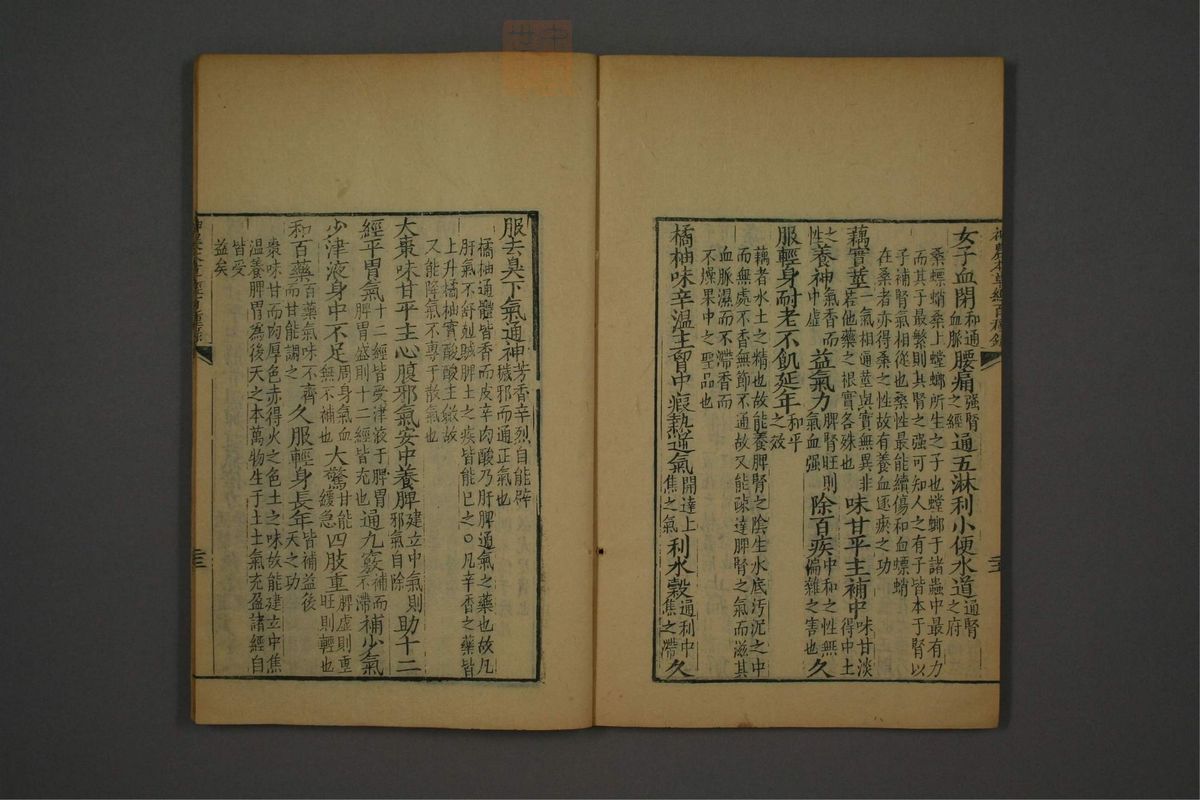 女子血閉和通血脈腰痛强腎之經通五淋利小便水道通腎之府
桑螵蛸桑上螳螂所生之子也螳螂于諸蟲中最有力
而其子最繁則其腎之强可知人之有子皆本于腎以
子補腎氣相從也桑性最能續傷和血螵蛸
在桑者亦得桑之性故有養血逐瘀之功
藕實莖一氣相通莖與實無異非若他藥之根實各殊也味甘平主補中味甘淡得中土
之性養神氣香而中虛益氣力脾腎旺則氣血强除百疾中和之性無偏雜之害也久
服輕身耐老不飢延年和平之效
藕者水土之精也故能養脾腎之陰生水底汚泥之中
而無處不香無節不通故又能疎達脾腎之氣而滋其
血脈濕而不滯香而
不燥果中之聖品也
橘柚味辛溫主胷中瘕熱逆氣開達上焦之氣利水穀通利中焦之滯久
服去臭下氣通神芳香辛烈自能辟穢邪而通正氣也
橘柚通體皆香而皮辛肉酸乃肝脾通氣之藥也故凡
肝氣不舒尅賊脾土之疾皆能已之○凡辛香之藥皆
上升橘柚實酸酸主斂故
又能降氣不專于散氣也
大棗味甘平主心腹邪氣安中養脾建立中氣則邪氣自除助十二
經平胃氣十二經皆受津液于脾胃脾胃盛則十二經皆充也通九竅補而不滯補少氣
少津液身中不足周身氣血無不補也大驚甘能緩急四肢重脾虛則重旺則輕也
和百藥百藥氣味不齊而甘能調之久服輕身長年皆補益後天之功
棗味甘而肉厚色赤得火之色土之味故能建立中焦
溫養脾胃為後天之本萬物生于土土氣充盈諸經自
皆受
益矣